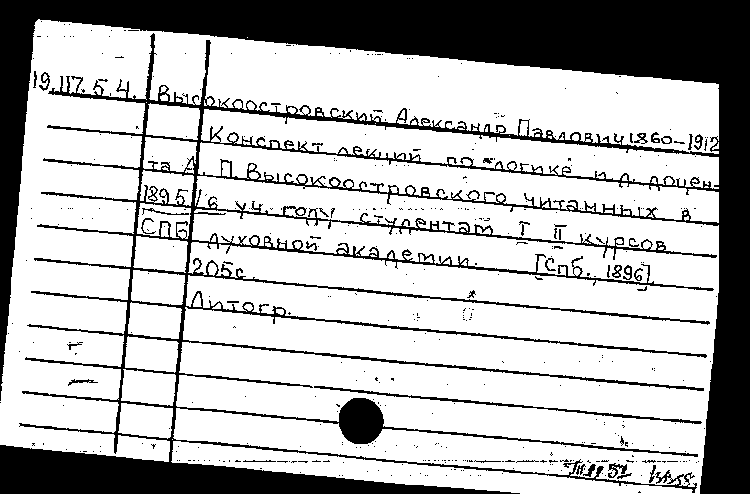 19.117.5.4. Высокоостровский, Александр Павлович, 1860-1912
Конспект лекций по логике и.д. доцен-
та А. П. Высокоостровского, читанных в
1895/6 уч. году студентам I II курсов
СПБ духовной академии. [Спб., 1896].
205с.
Литогр.